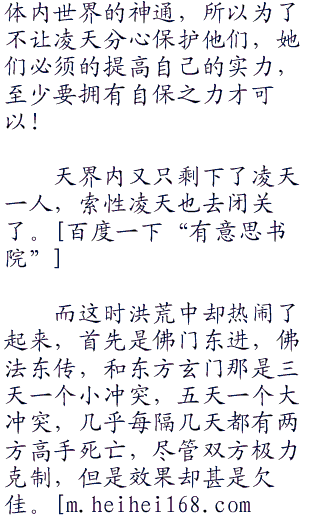 体内世界的神通，所以为了
不让凌天分心保护他们，她
们必须的提高自己的实力，
至少要拥有自保之力才可
以！
天界内又只剩下了凌天
一人，索性凌天也去闭关
了。[百度一下“有意思书
院”]
而这时洪荒中却热闹了
起来，首先是佛门东进，佛
法东传，和东方玄门那是三
天一个小冲突，五天一个大
冲突，几乎每隔几天都有两
方高手死亡，尽管双方极力
克制，但是效果却甚是欠
佳。[m.heihei168.com